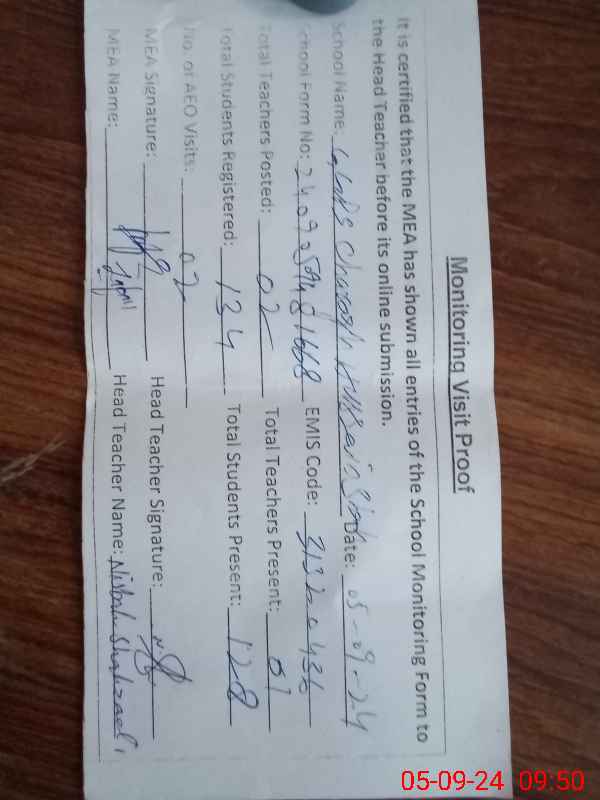 Monitoring Visit Proof
It is certified that the MEA has shown all entries of the School Monitoring Form to
the Head Teacher before its online submission.
School Name: Chragh Hussain Shah Date: 05-09-24
School Form No: EMIS Code: 31320436
Total Teachers Posted: 02 Total Teachers Present: 01
Total Students Registered: 134 Total Students Present: 128
No. of AEO Visits: 02
MEA Signature: Head Teacher Signature:
MEA Name: Head Teacher Name: Shahzadi
05-09-24 09:50